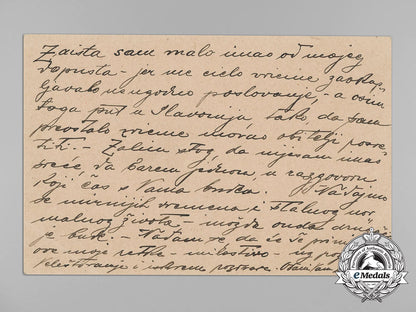 Zaista sam malo imao od mojeg
dopusta - jer me cielo vrieme zaokup
ljavalo neugodno poslovanje, - a osim
toga put u Slavoniju, tako, da sam
preostalo vrieme morao obitelji posve
titi. - Žalim stog, da nijesam imao
sreće da barem jednom, u razgovoru
koji čas s Vama budem. Nadajmo
se mirnijih vremena i stalnog nor
malnog života - možda onda
je bude. - Nadam se da će se
ove moje redke - milostivo -
Veleštovanje i iskren pozdrav.
eMedals